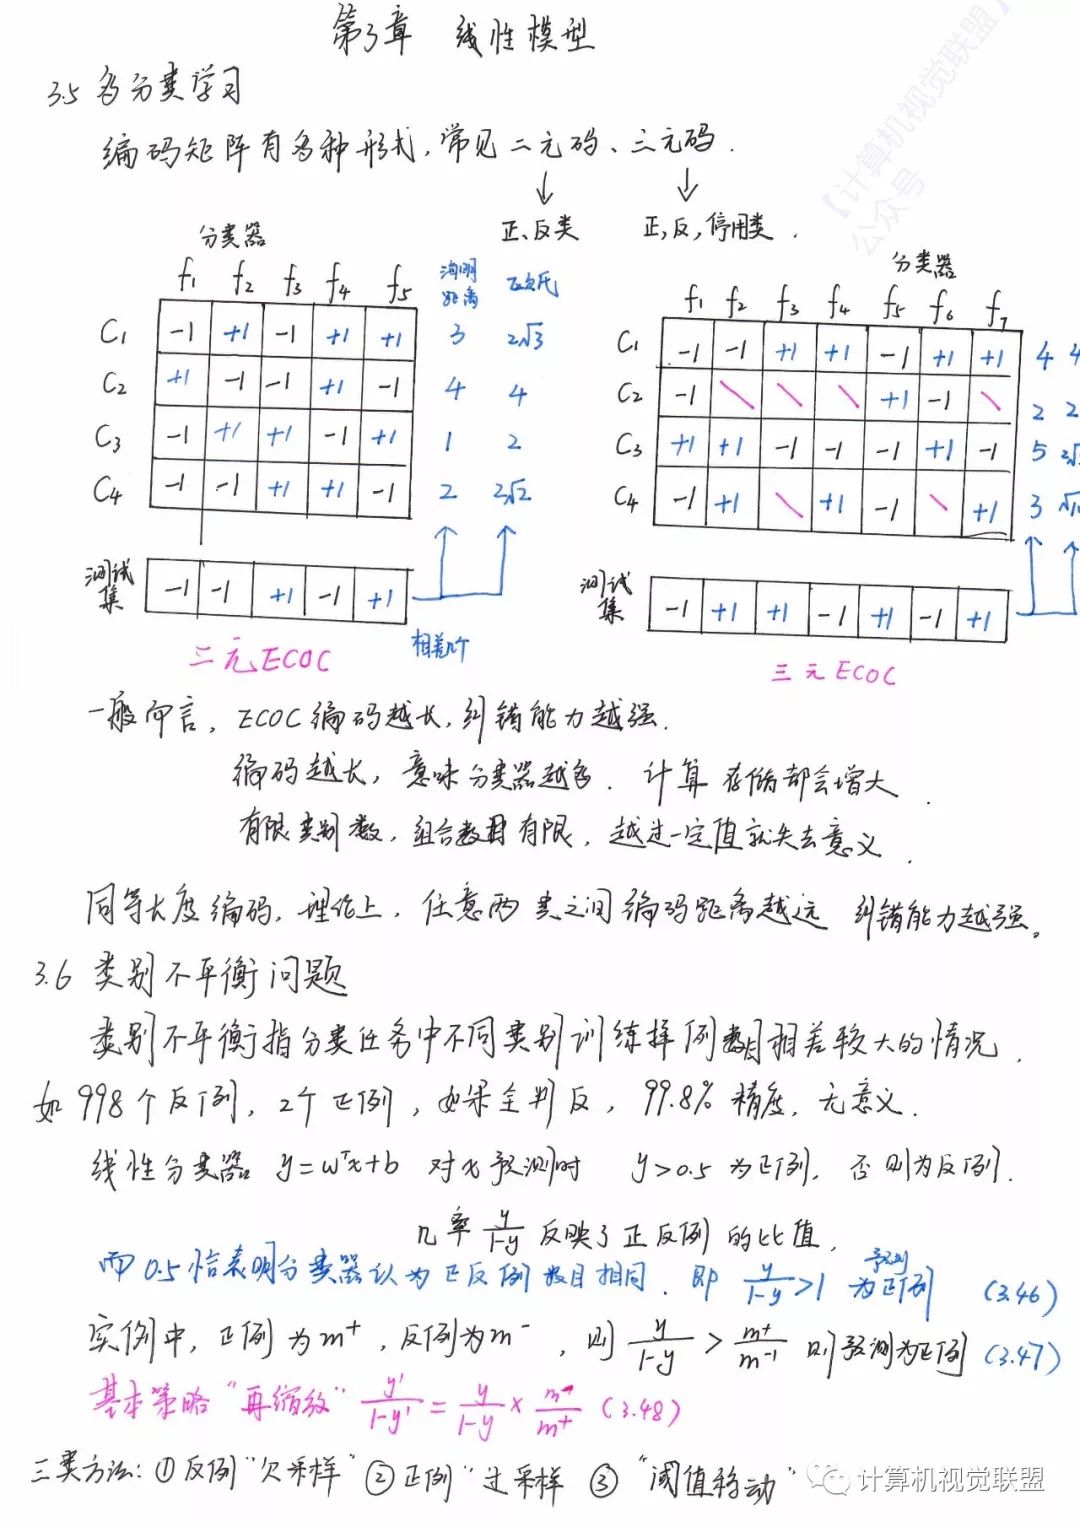 第3章 线性模型
3.5 多分类学习
编码矩阵有多种形式,常见二元码、三元码.
正、反类 正,反,停用类.
分类器
f₁ f₂ f₃ f₄ f₅ 海明距离 欧氏
C₁ -1 +1 -1 +1 +1 3 2√3
C₂ +1 -1 -1 +1 -1 4 4
C₃ -1 +1 +1 -1 +1 1 2
C₄ -1 -1 +1 +1 -1 2 2√2
测试集 -1 -1 +1 -1 +1
相差几个
二元ECOC
分类器
f₁ f₂ f₃ f₄ f₅ f₆ f₇
C₁ -1 -1 +1 +1 -1 +1 +1 4 4
C₂ -1 \ \ \ +1 -1 \ 2 2
C₃ +1 +1 -1 -1 -1 +1 -1 5 2√
C₄ -1 +1 \ +1 -1 \ +1 3 √1
测试集 -1 +1 +1 -1 +1 -1 +1
三元ECOC
一般而言,ECOC编码越长,纠错能力越强.
编码越长,意味分类器越多.计算存储都会增大.
有限类别数,组合数目有限,越过一定值就失去意义.
同等长度编码,理论上,任意两类之间编码距离越远 纠错能力越强。
3.6 类别不平衡问题
类别不平衡指分类任务中不同类别训练样例数目相差较大的情况.
如998个反例,2个正例,如果全判反,99.8%精度,无意义.
线性分类器 y=wᵀx+b 对x预测时 y>0.5为正例,否则为反例.
几率 y/1-y 反映了正反例的比值,
而0.5恰表明分类器认为正反例数目相同.即 y/1-y >1 预测为正例 (3.46)
实例中,正例为m⁺,反例为m⁻,则 y/1-y > m⁺/m⁻ 则预测为正例 (3.47)
基本策略"再缩放" y'/1-y' = y/1-y × m⁻/m⁺ (3.48)
三类方法:①反例"欠采样" ②正例"过采样 ③"阈值移动"
计算机视觉联盟
【计算机视觉联盟】
公众号